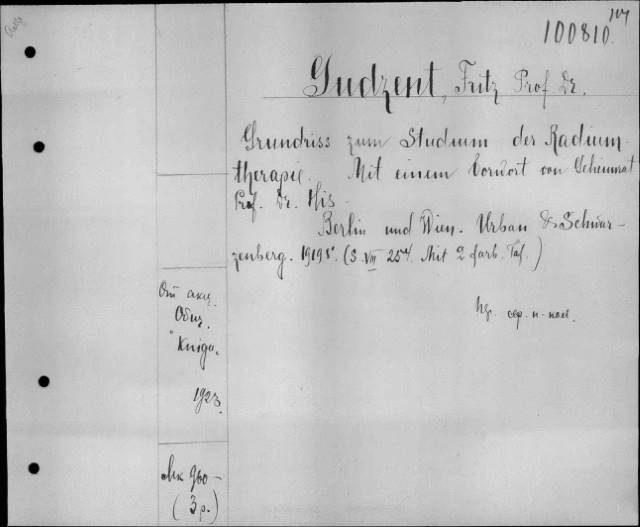 100810.
Gudzent, Fritz Prof. Dr.
Grundriss zum Studium der Radium-
therapie. Mit einem Vorwort von Geheimrat
Prof. Dr. His.
Berlin und Wien. Urban & Schwar-
zenberg. 1919 8°. (S. VIII 254. Mit 2 farb. Taf.)
От акц.
Общ.
"Kniga"
1923.
Мк 960 –
(3 р.)